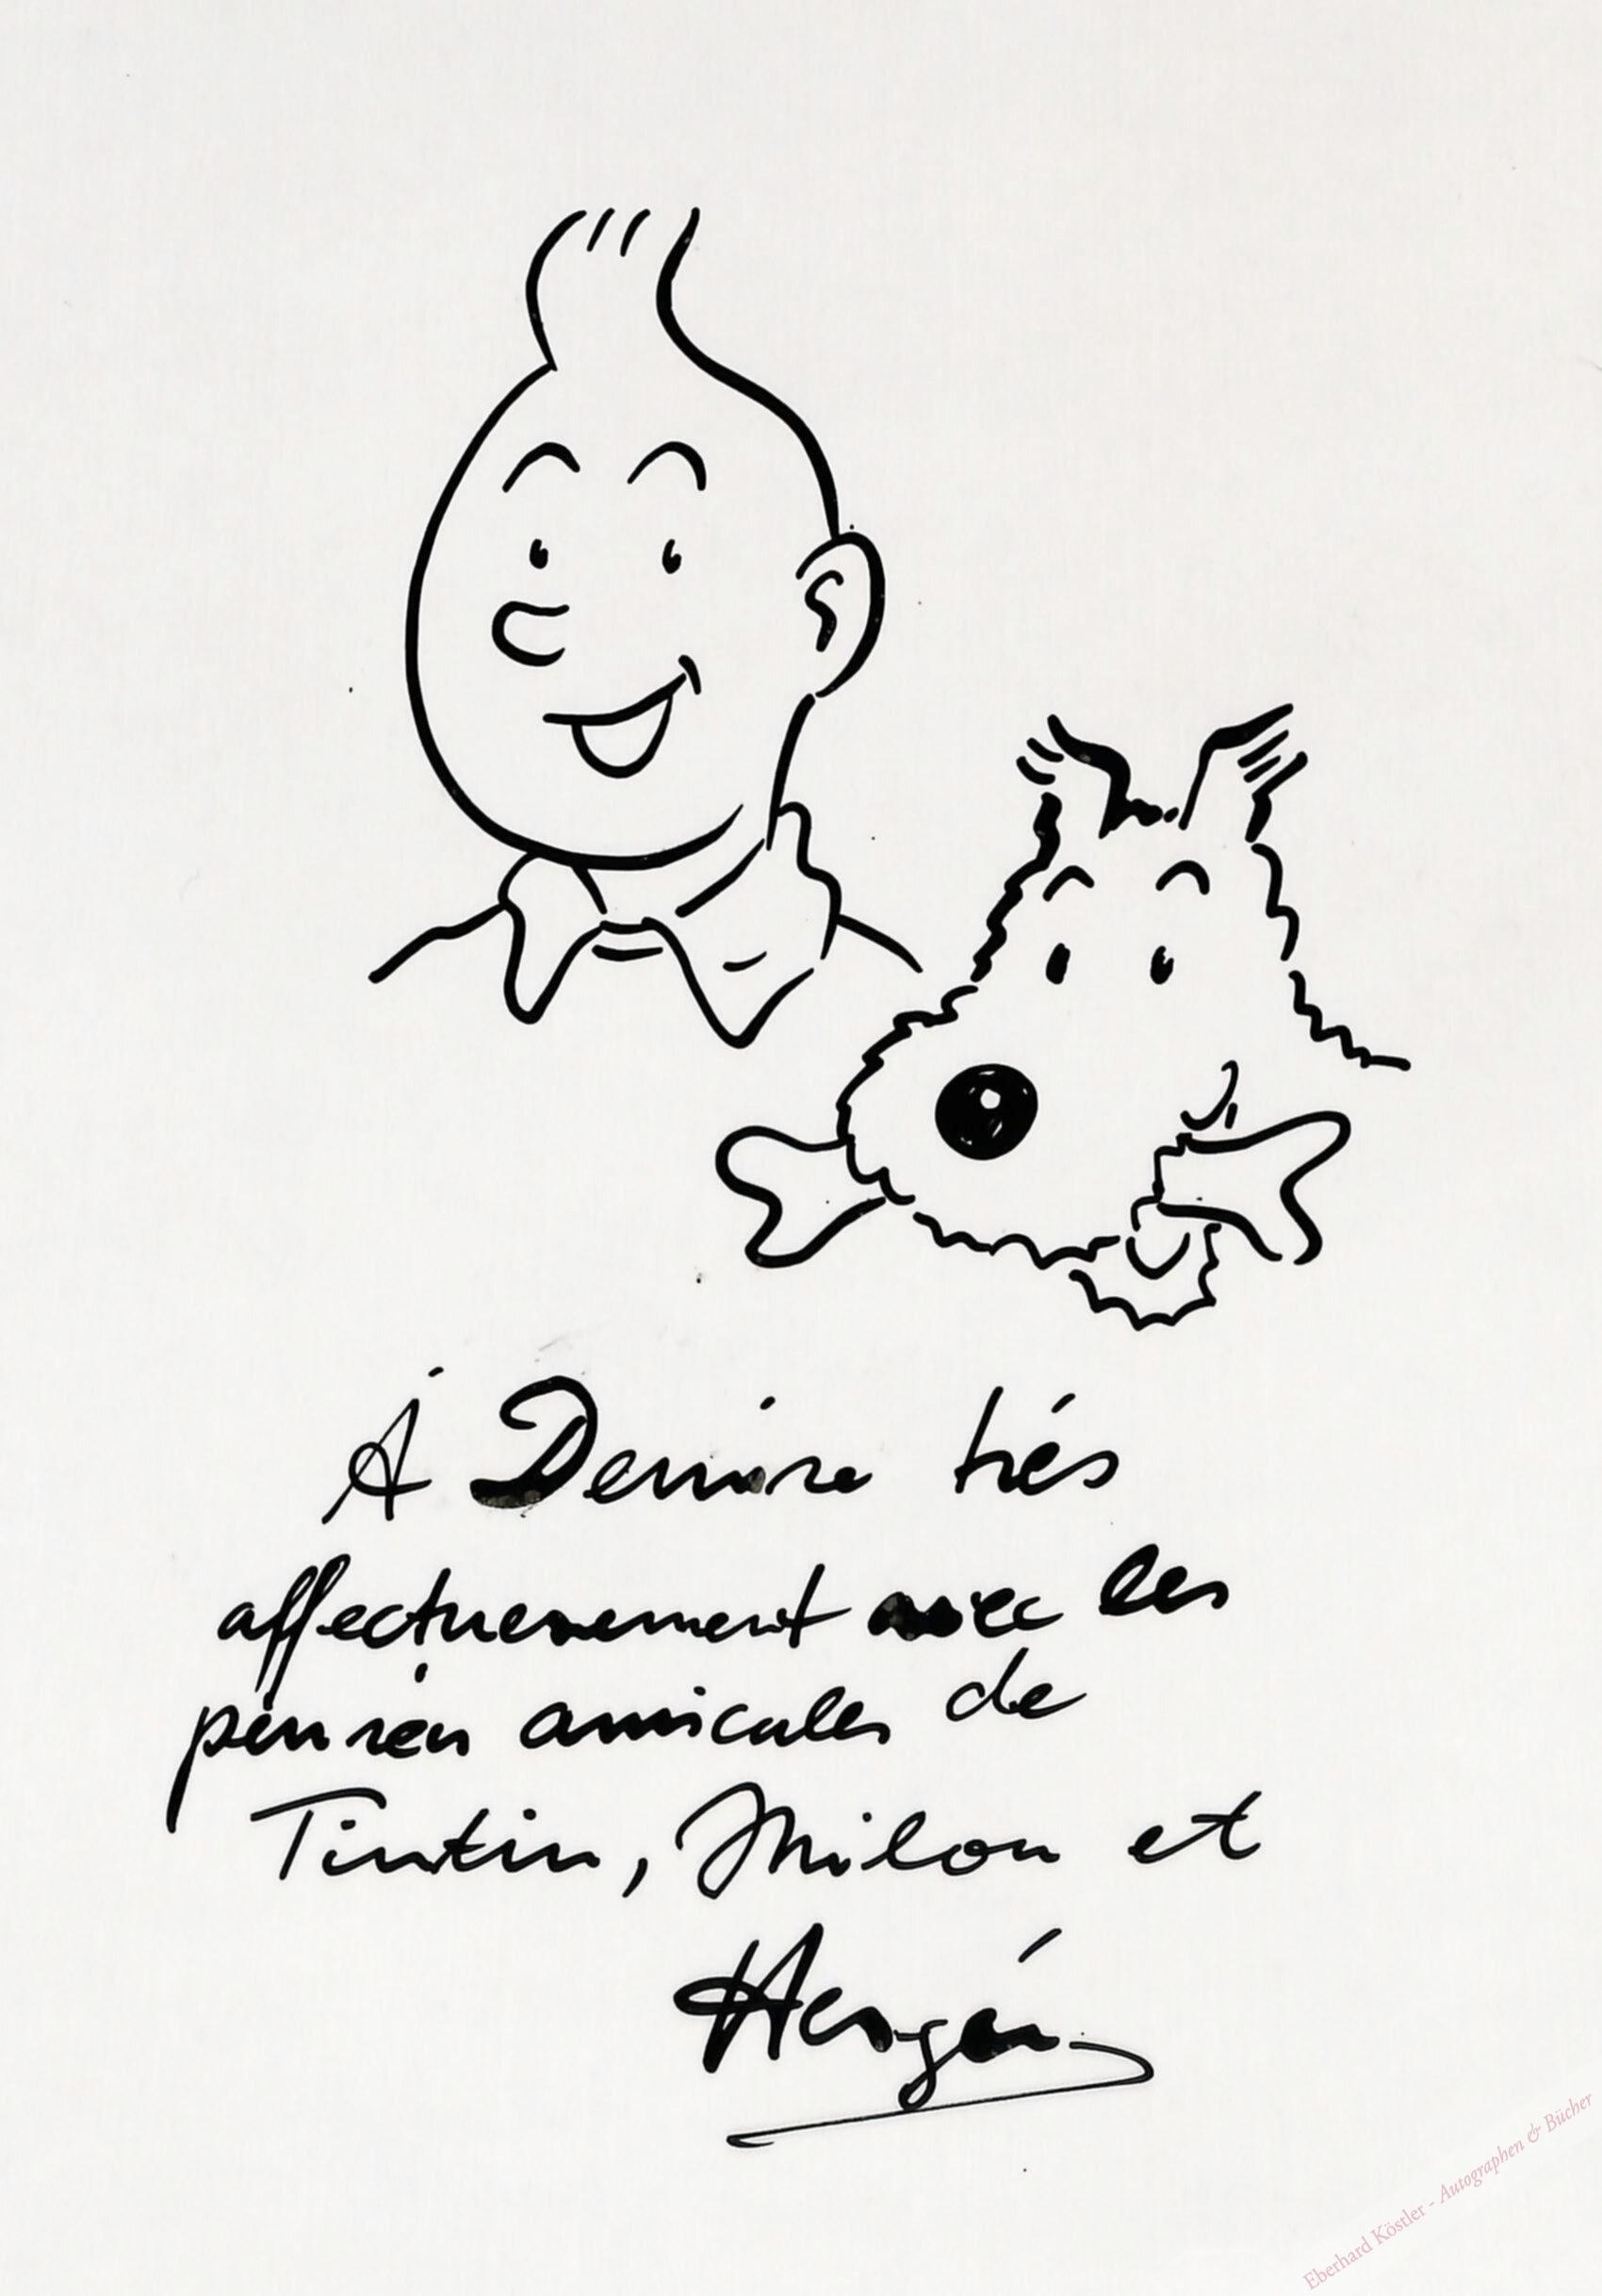 À Denise très
affectueusement avec les
pensées amicales de
Tintin, Milou et
Hergé
Eberhard Köstler - Autographen & Bücher